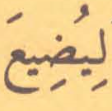 لِيُضِيعَ